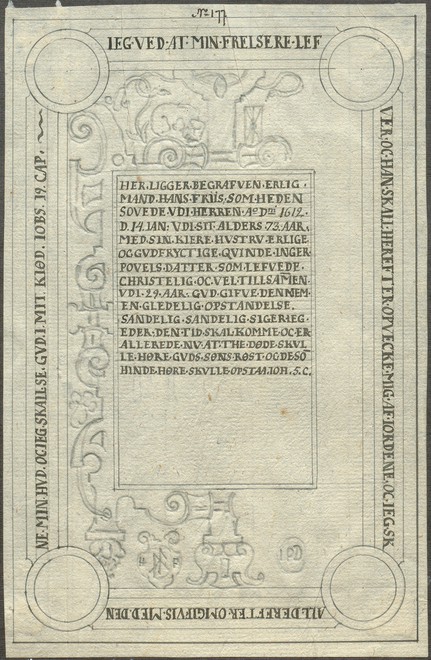 No 177
IEG·VED·AT·MIN·FRELSERE·LEF
VER·OC·HAN·SKAL·HEREFTER·OPVECKE·MIG·AF·IORDENE·OC·IEG·SK
ALL·DEREFTER·OMGIFVIS·MED·DEN
NE·MIN·HVD·OC·IEG·SKAL·SE·GVD·I·MIT·KIØD·IOBS·19·CAP·
HER·LIGGER·BEGRAFVEN·ERLIG·
MAND·HANS·FRIIS·SOM·HEDEN
SOVEDE·VDI·HERREN·Ao·Dni·1612·
D·14·IAN·VDI·SIT·ALDERS·73·AAR·
MED·SIN·KIERE·HVSTRV·ERLIGE
OC·GVDFRYCTIGE·QVINDE·INGER
POVELS·DATTER·SOM·LEFVEDE
CHRISTELIG·OC·VEL·TILLSAMEN·
VDI·29·AAR·GVD·GIFVE·DENNEM·
EN·GLEDELIG·OPSTANDELSE·
SANDELIG·SANDELIG·SIGER·IEG·
EDER·DEN·TID·SKAL·KOMME·OC·ER
ALLEREDE·NV·AT·THE·DØDE·SKVL
LE·HØRE·GVDS·SØNS·RØST·OC·DE·SO
HINDE·HØRE·SKVLLE·OPSTAA·IOH·5·C·